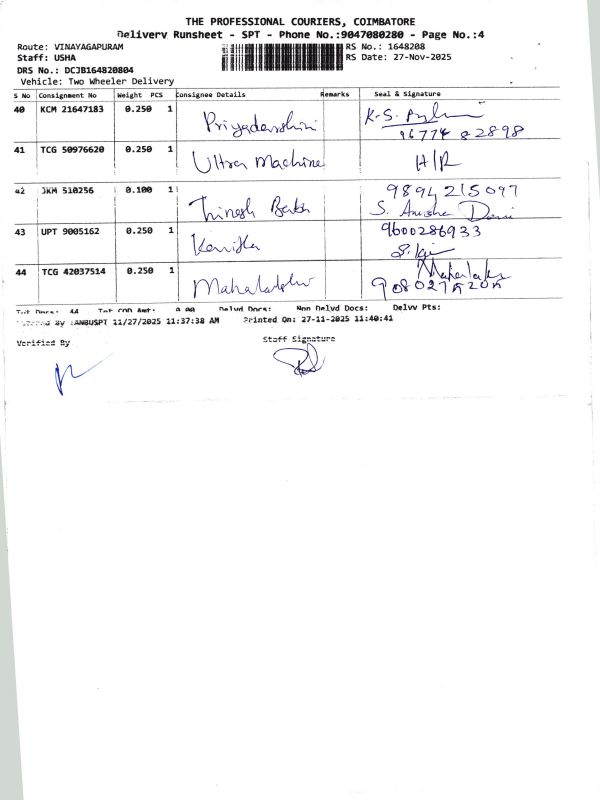 THE PROFESSIONAL COURIERS, COIMBATORE
Delivery Runsheet - SPT - Phone No.:9047080280 - Page No.:4
Route: VINAYAGAPURAM
RS No.: 1648208
Staff: USHA
RS Date: 27-Nov-2025
DRS No.: DCJB164820804
Vehicle: Two Wheeler Delivery
S No Consignment No Weight PCS Consignee Details Remarks Seal & Signature
40 KCM 21647183 0.250 1 Priyadarshini K-S.
96774 82898
41 TCG 50976620 0.250 1 Ultra Machine H/R
42 JKM 510256 0.100 1 9894215097
S. Devi
43 UPT 9005162 0.250 1 Kaniska 9600286933
44 TCG 42037514 0.250 1 Mahalakshmi
Tot Docs: 44 Tot COD Amt: 0.00 Delvd Docs: Non Delvd Docs: Delvv Pts:
By :ANBUSPT 11/27/2025 11:37:38 AM Printed On: 27-11-2025 11:40:41
Verified By
Staff Signature